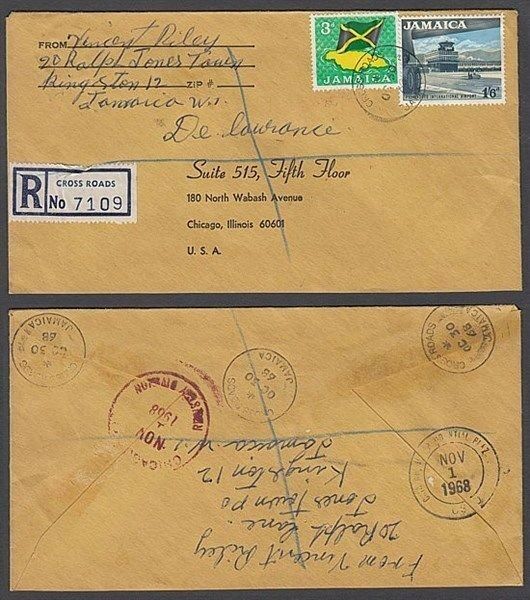 FROM Vincent Riley
20 Ralph Jones Town
Kingston 12 ZIP #
Jamaica W.I.
3d
JAMAICA
JAMAICA
INTERNATIONAL AIRPORT
1'6d
De Lawrance
Suite 515, Fifth Floor
180 North Wabash Avenue
Chicago, Illinois 60601
U. S. A.
R
CROSS ROADS
No 7109
CROSS ROADS
OC 30
68
JAMAICA
CROSS ROADS
OC 30
68
JAMAICA
CROSS ROADS
OC 30
68
JAMAICA
CHICAGO
NOV
1
1968
NOV
1
1968
From Vincent Riley
20 Ralph Lane.
Jones Town PO
Kingston 12
Jamaica W.I